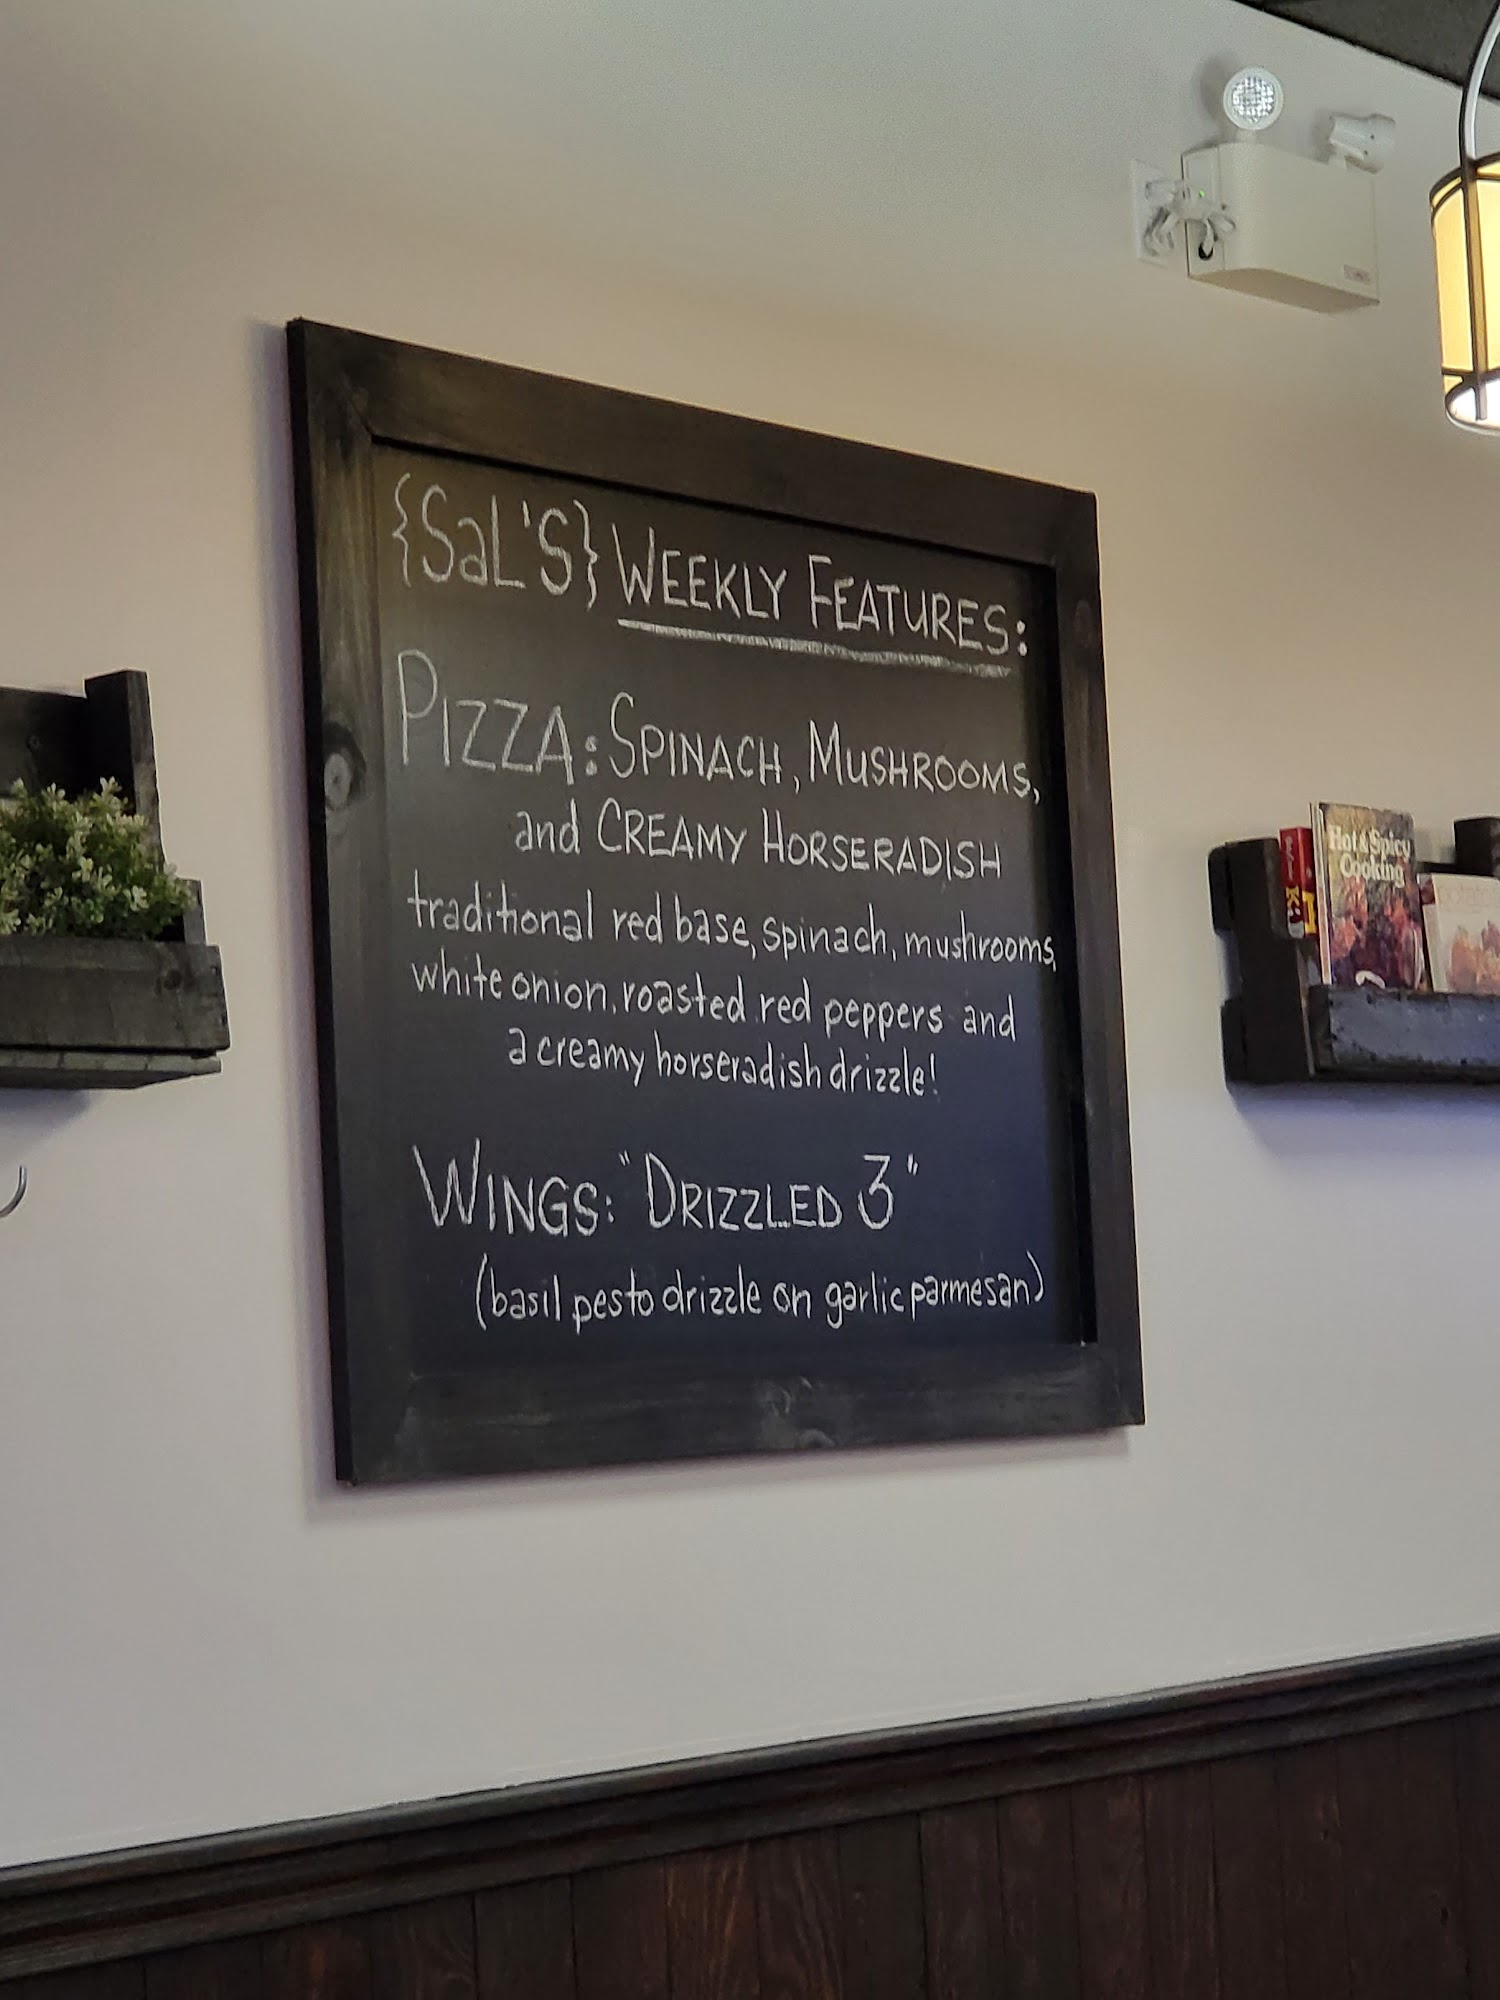 {SaL'S} WEEKLY FEATURES:
PIZZA: SPINACH, MUSHROOMS,
and CREAMY HORSERADISH
traditional red base, spinach, mushrooms,
white onion, roasted red peppers and
a creamy horseradish drizzle!
WINGS: "DRIZZLED 3"
(basil pesto drizzle on garlic parmesan)
Hot & Spicy
Cooking